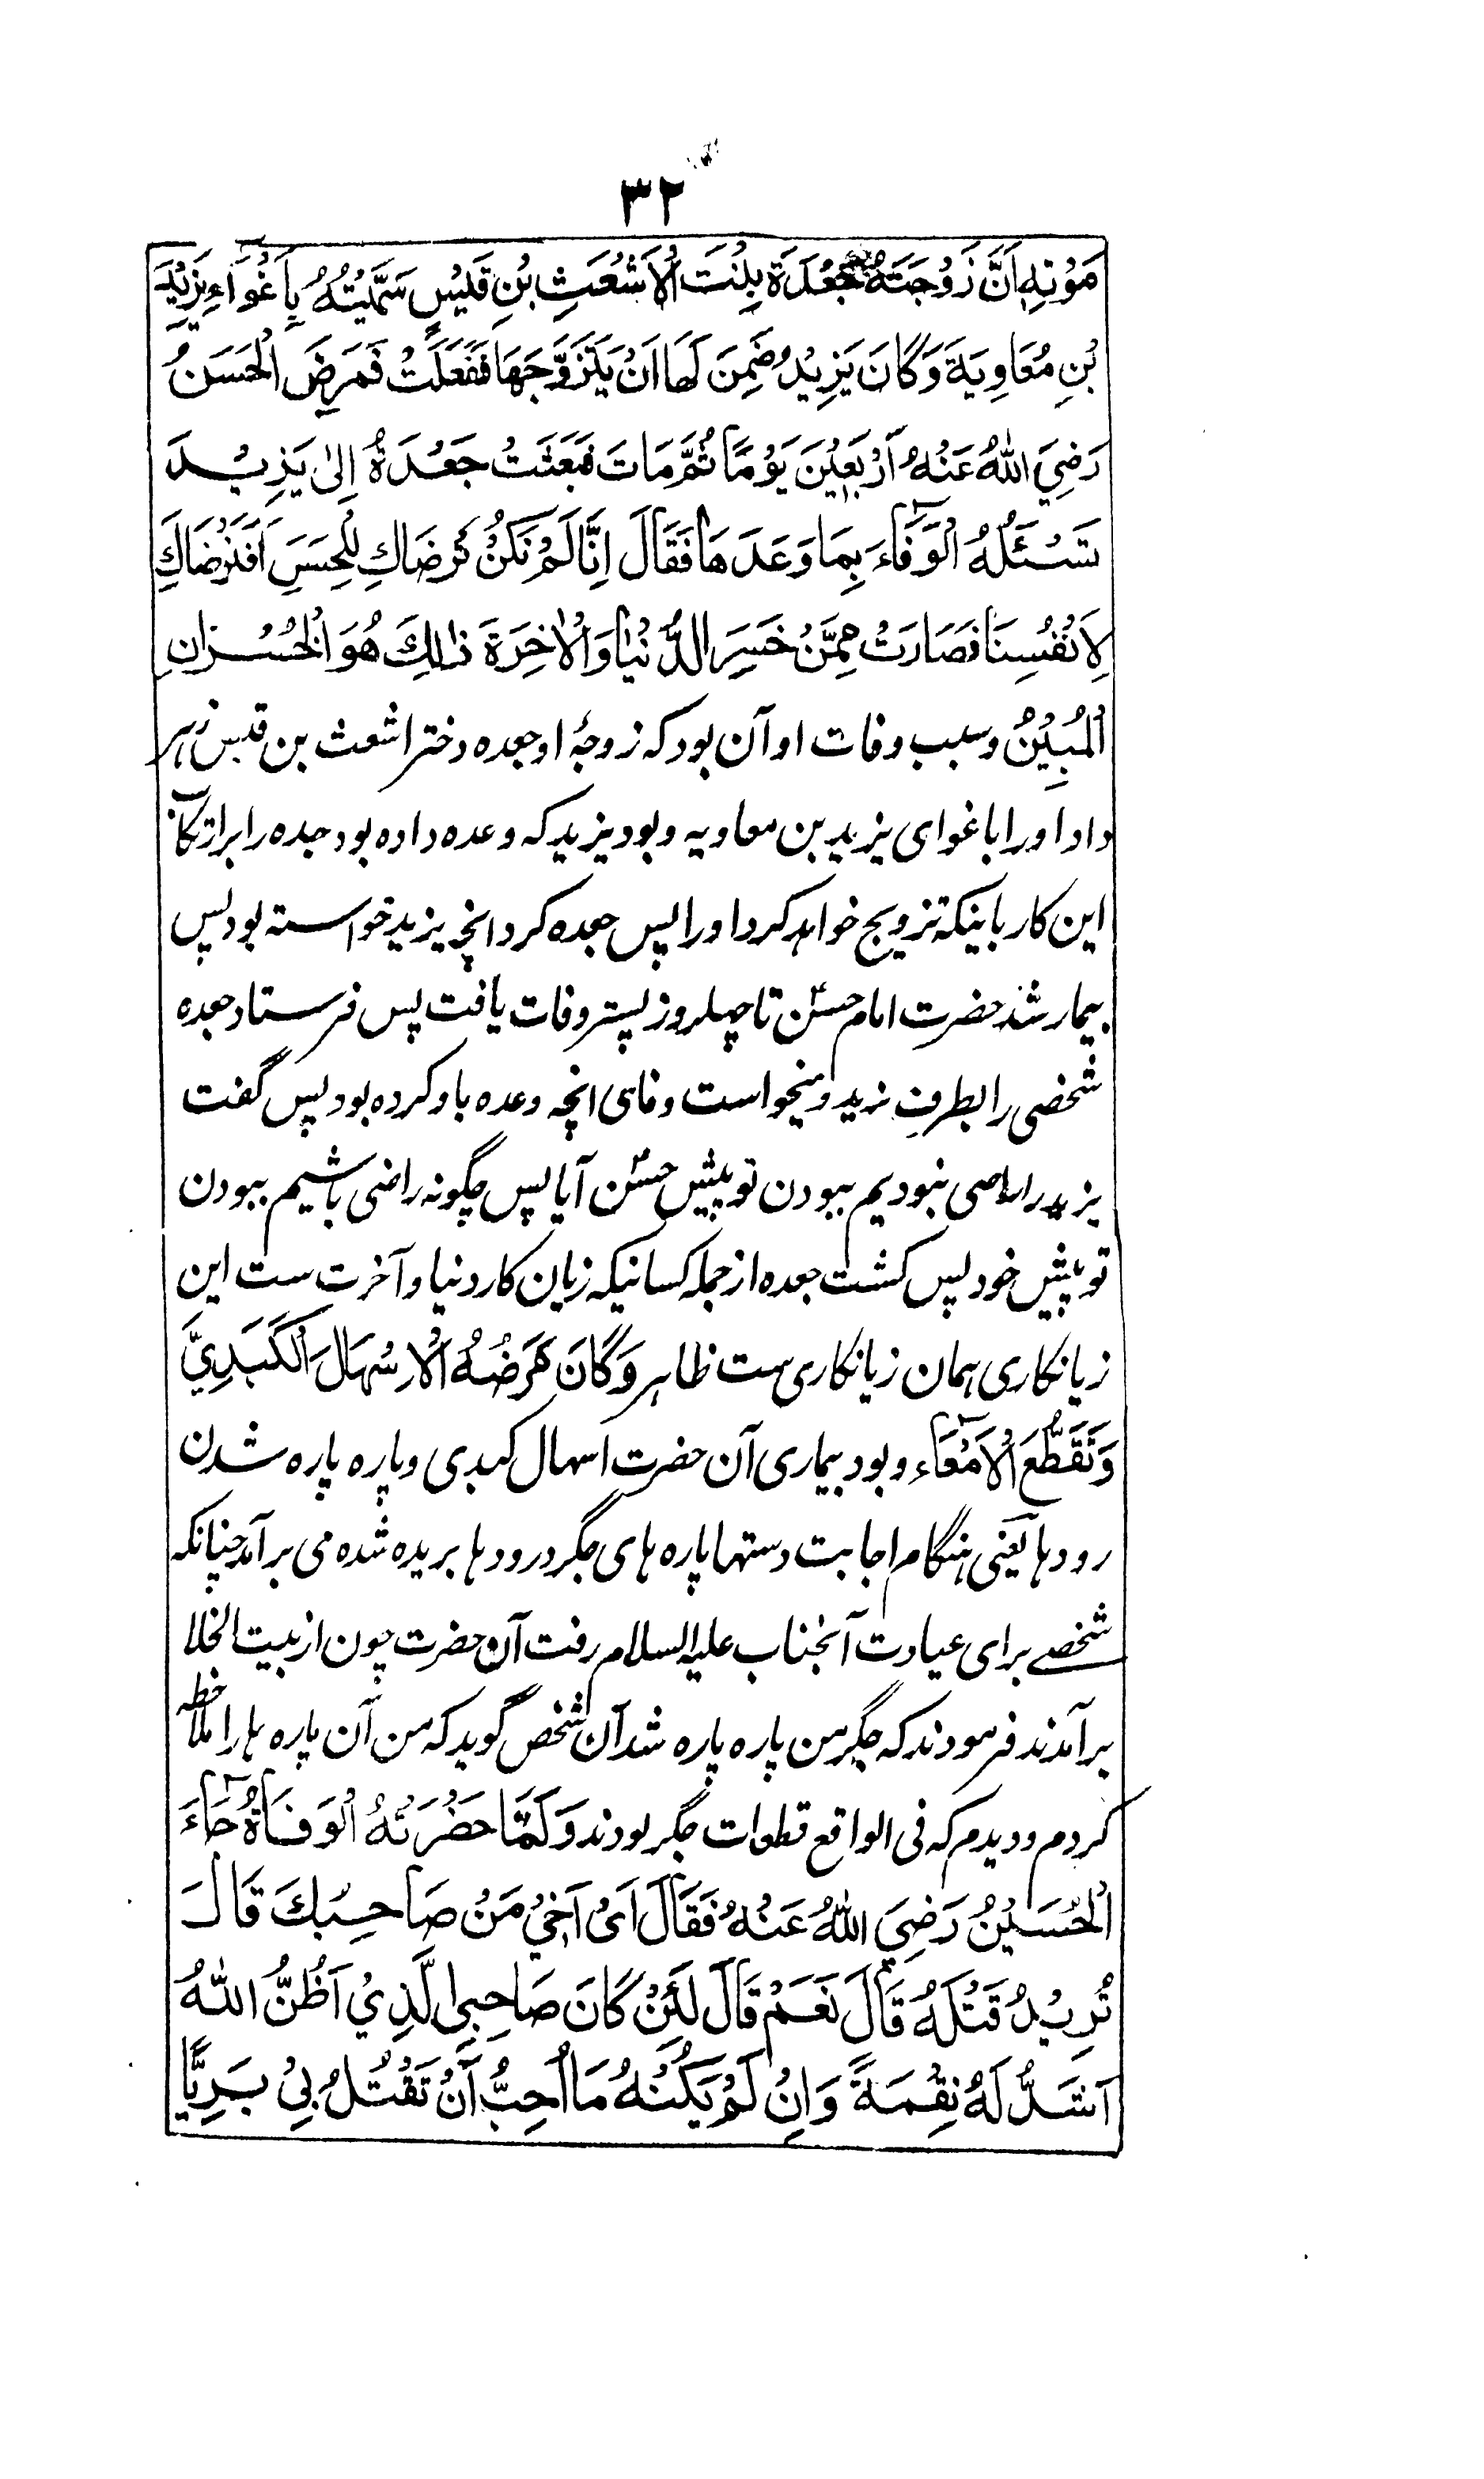 ٣٢
مَوْتِهِ اَنَّ زَوْجَتَهُ جَعْدَةَ بِنْتَ الْاَشْعَثِ بْنِ قَيْسٍ سَمَّيْتُهُ بِاَغْوَاءِ يَزِيْدَ
بْنِ مُعَاوِيَةَ وَكَانَ يَزِيْدُ ضَمِنَ لَهَا اَنْ يَتَزَوَّجَهَا فَفَعَلَتْ فَمَرِضَ الْحَسَنُ
رَضِيَ اللّٰهُ عَنْهُ اَرْبَعِيْنَ يَوْمًا ثُمَّ مَاتَ فَبَعَثَتْ جَعْدَةُ اِلىٰ يَزِيْدَ
تَسْئَلُهُ الْوَفَاءَ بِمَا وَعَدَهَا فَقَالَ اِنَّا لَمْ نَكُنْ نَرْضَاكِ لِلْحَسَنِ اَفَنَرْضَاكِ
لِاَنْفُسِنَا فَصَارَتْ مِمَّنْ خَسِرَ الدُّنْيَا وَالْاٰخِرَةَ ذٰلِكَ هُوَ الْخُسْرَانِ
الْمُبِيْنُ وسبب وفات او آن بود که زوجهٔ او جعده دختر اشعث بن قیس زہر
داد او را باغوای یزید بن معاویه و بود یزید که وعده داده بود جعده را بر ارتکاب
این کار باینکه تزویج خواہد کرد او را پس جعده کرد انچه یزید خواسته بود پس
بیمار شد حضرت امام حسنؑ تا چہلروز پستر وفات یافت پس فرستاد جعده
شخصی را بطرف یزید و میخواست وفای انچه وعده باو کرده بود پس گفت
یزید را راضی نبودیم ببودن تو پیش حسنؑ آیا پس چگونه راضی باشیم ببودن
تو پیش خود پس گشت جعده از جمله کسانیکه زیان کار دنیا و آخرت ست این
زیانکاری ہمان زیانکاری ست ظاہر وَكَانَ مَرَضُهُ الْاِسْهَالَ الْكَبَدِيَّ
وَتَقَطُّعَ الْاَمْعَاءِ و بود بیماری آن حضرت اسہال کبدی و پاره پاره شدن
رودہا یعنی ہنگام اجابت دستہا پاره ہای جگر و رودہا بریده شده می برآمد چنانکه
شخصے برای عیادت آنجناب علیه السلام رفت آن حضرت چون از بیت الخلا
برآمدند فرمودند که جگر من پاره پاره شد آن شخص گوید که من آن پاره ہا را ملاحظه
کردم و دیدم که فی الواقع قطعات جگر بودند وَلَمَّا حَضَرَتْهُ الْوَفَاةُ جَاءَ
الْحُسَيْنُ رَضِيَ اللّٰهُ عَنْهُ فَقَالَ اَیْ اَخِيْ مَنْ صَاحِبُكَ قَالَ
تُرِيْدُ قَتْلَهُ قَالَ نَعَمْ قَالَ لَئِنْ كَانَ صَاحِبِى الَّذِيْ اَظُنُّ اللّٰهُ
اَشَدُّ لَهُ نِقْمَةً وَاِنْ لَمْ يَكُنْهُ مَا اُحِبُّ اَنْ تَقْتُلَ بِيْ بَرِيًّا